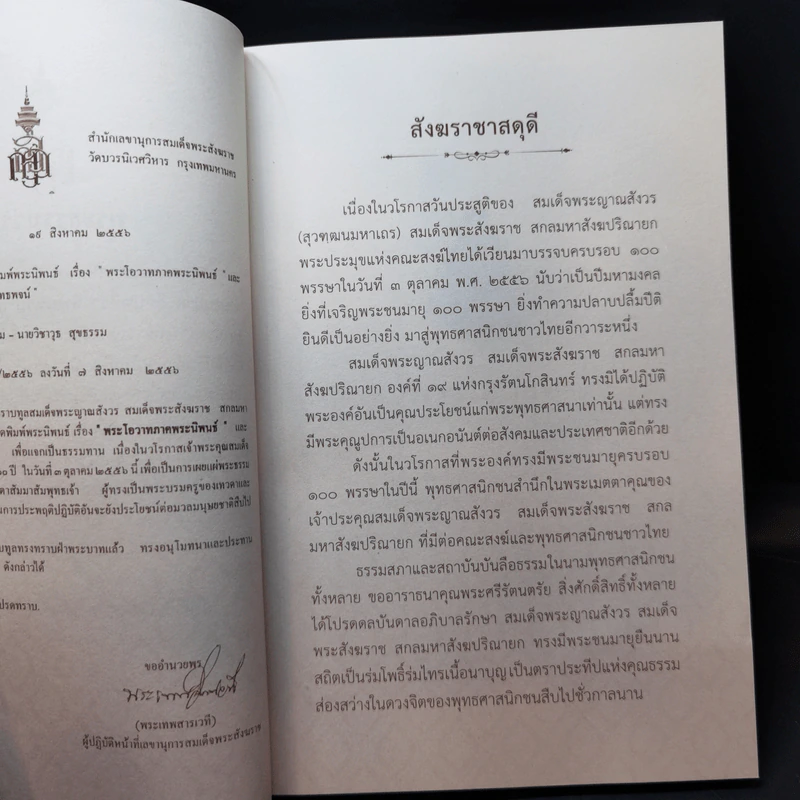 สำนักเลขานุการสมเด็จพระสังฆราช
วัดบวรนิเวศวิหาร กรุงเทพมหานคร
๑๙ สิงหาคม ๒๕๕๖
พิมพ์พระนิพนธ์ เรื่อง " พระโอวาทภาคพระนิพนธ์ " และ
ทธพจน์ "
ม - นายวิชาวุธ สุขธรรม
/๒๕๕๖ ลงวันที่ ๗ สิงหาคม ๒๕๕๖
ราบทูลสมเด็จพระญาณสังวร สมเด็จพระสังฆราช สกลมหา
ดพิมพ์พระนิพนธ์ เรื่อง " พระโอวาทภาคพระนิพนธ์ " และ
เพื่อแจกเป็นธรรมทาน เนื่องในวโรกาสเจ้าพระคุณสมเด็จ
๐ ปี ในวันที่ ๓ ตุลาคม ๒๕๕๖ นี้ เพื่อเป็นการเผยแผ่พระธรรม
ตาสัมมาสัมพุทธเจ้า ผู้ทรงเป็นพระบรมครูของเทวดาและ
นการประพฤติปฏิบัติอันจะยังประโยชน์ต่อมวลมนุษยชาติสืบไป
บทูลทรงทราบฝ่าพระบาทแล้ว ทรงอนุโมทนาและประทาน
ดังกล่าวได้
ปรดทราบ.
ขออำนวยพร
(พระเทพสารเวที)
ผู้ปฏิบัติหน้าที่เลขานุการสมเด็จพระสังฆราช
สังฆราชาสดุดี
เนื่องในวโรกาสวันประสูติของ สมเด็จพระญาณสังวร
(สุวฑฺฒนมหาเถร) สมเด็จพระสังฆราช สกลมหาสังฆปริณายก
พระประมุขแห่งคณะสงฆ์ไทยได้เวียนมาบรรจบครบรอบ ๑๐๐
พรรษาในวันที่ ๓ ตุลาคม พ.ศ. ๒๕๕๖ นับว่าเป็นปีมหามงคล
ยิ่งที่เจริญพระชนมายุ ๑๐๐ พรรษา ยิ่งทำความปลาบปลื้มปีติ
ยินดีเป็นอย่างยิ่ง มาสู่พุทธศาสนิกชนชาวไทยอีกวาระหนึ่ง
สมเด็จพระญาณสังวร สมเด็จพระสังฆราช สกลมหา
สังฆปริณายก องค์ที่ ๑๙ แห่งกรุงรัตนโกสินทร์ ทรงมิได้ปฏิบัติ
พระองค์อันเป็นคุณประโยชน์แก่พระพุทธศาสนาเท่านั้น แต่ทรง
มีพระคุณูปการเป็นอเนกอนันต์ต่อสังคมและประเทศชาติอีกด้วย
ดังนั้นในวโรกาสที่พระองค์ทรงมีพระชนมายุครบรอบ
๑๐๐ พรรษาในปีนี้ พุทธศาสนิกชนสำนึกในพระเมตตาคุณของ
เจ้าประคุณสมเด็จพระญาณสังวร สมเด็จพระสังฆราช สกล
มหาสังฆปริณายก ที่มีต่อคณะสงฆ์และพุทธศาสนิกชนชาวไทย
ธรรมสภาและสถาบันบันลือธรรมในนามพุทธศาสนิกชน
ทั้งหลาย ขออาราธนาคุณพระศรีรัตนตรัย สิ่งศักดิ์สิทธิ์ทั้งหลาย
ได้โปรดดลบันดาลอภิบาลรักษา สมเด็จพระญาณสังวร สมเด็จ
พระสังฆราช สกลมหาสังฆปริณายก ทรงมีพระชนมายุยืนนาน
สถิตเป็นร่มโพธิ์ร่มไทรเนื้อนาบุญเป็นตราประทีปแห่งคุณธรรม
ส่องสว่างในดวงจิตของพุทธศาสนิกชนสืบไปชั่วกาลนาน